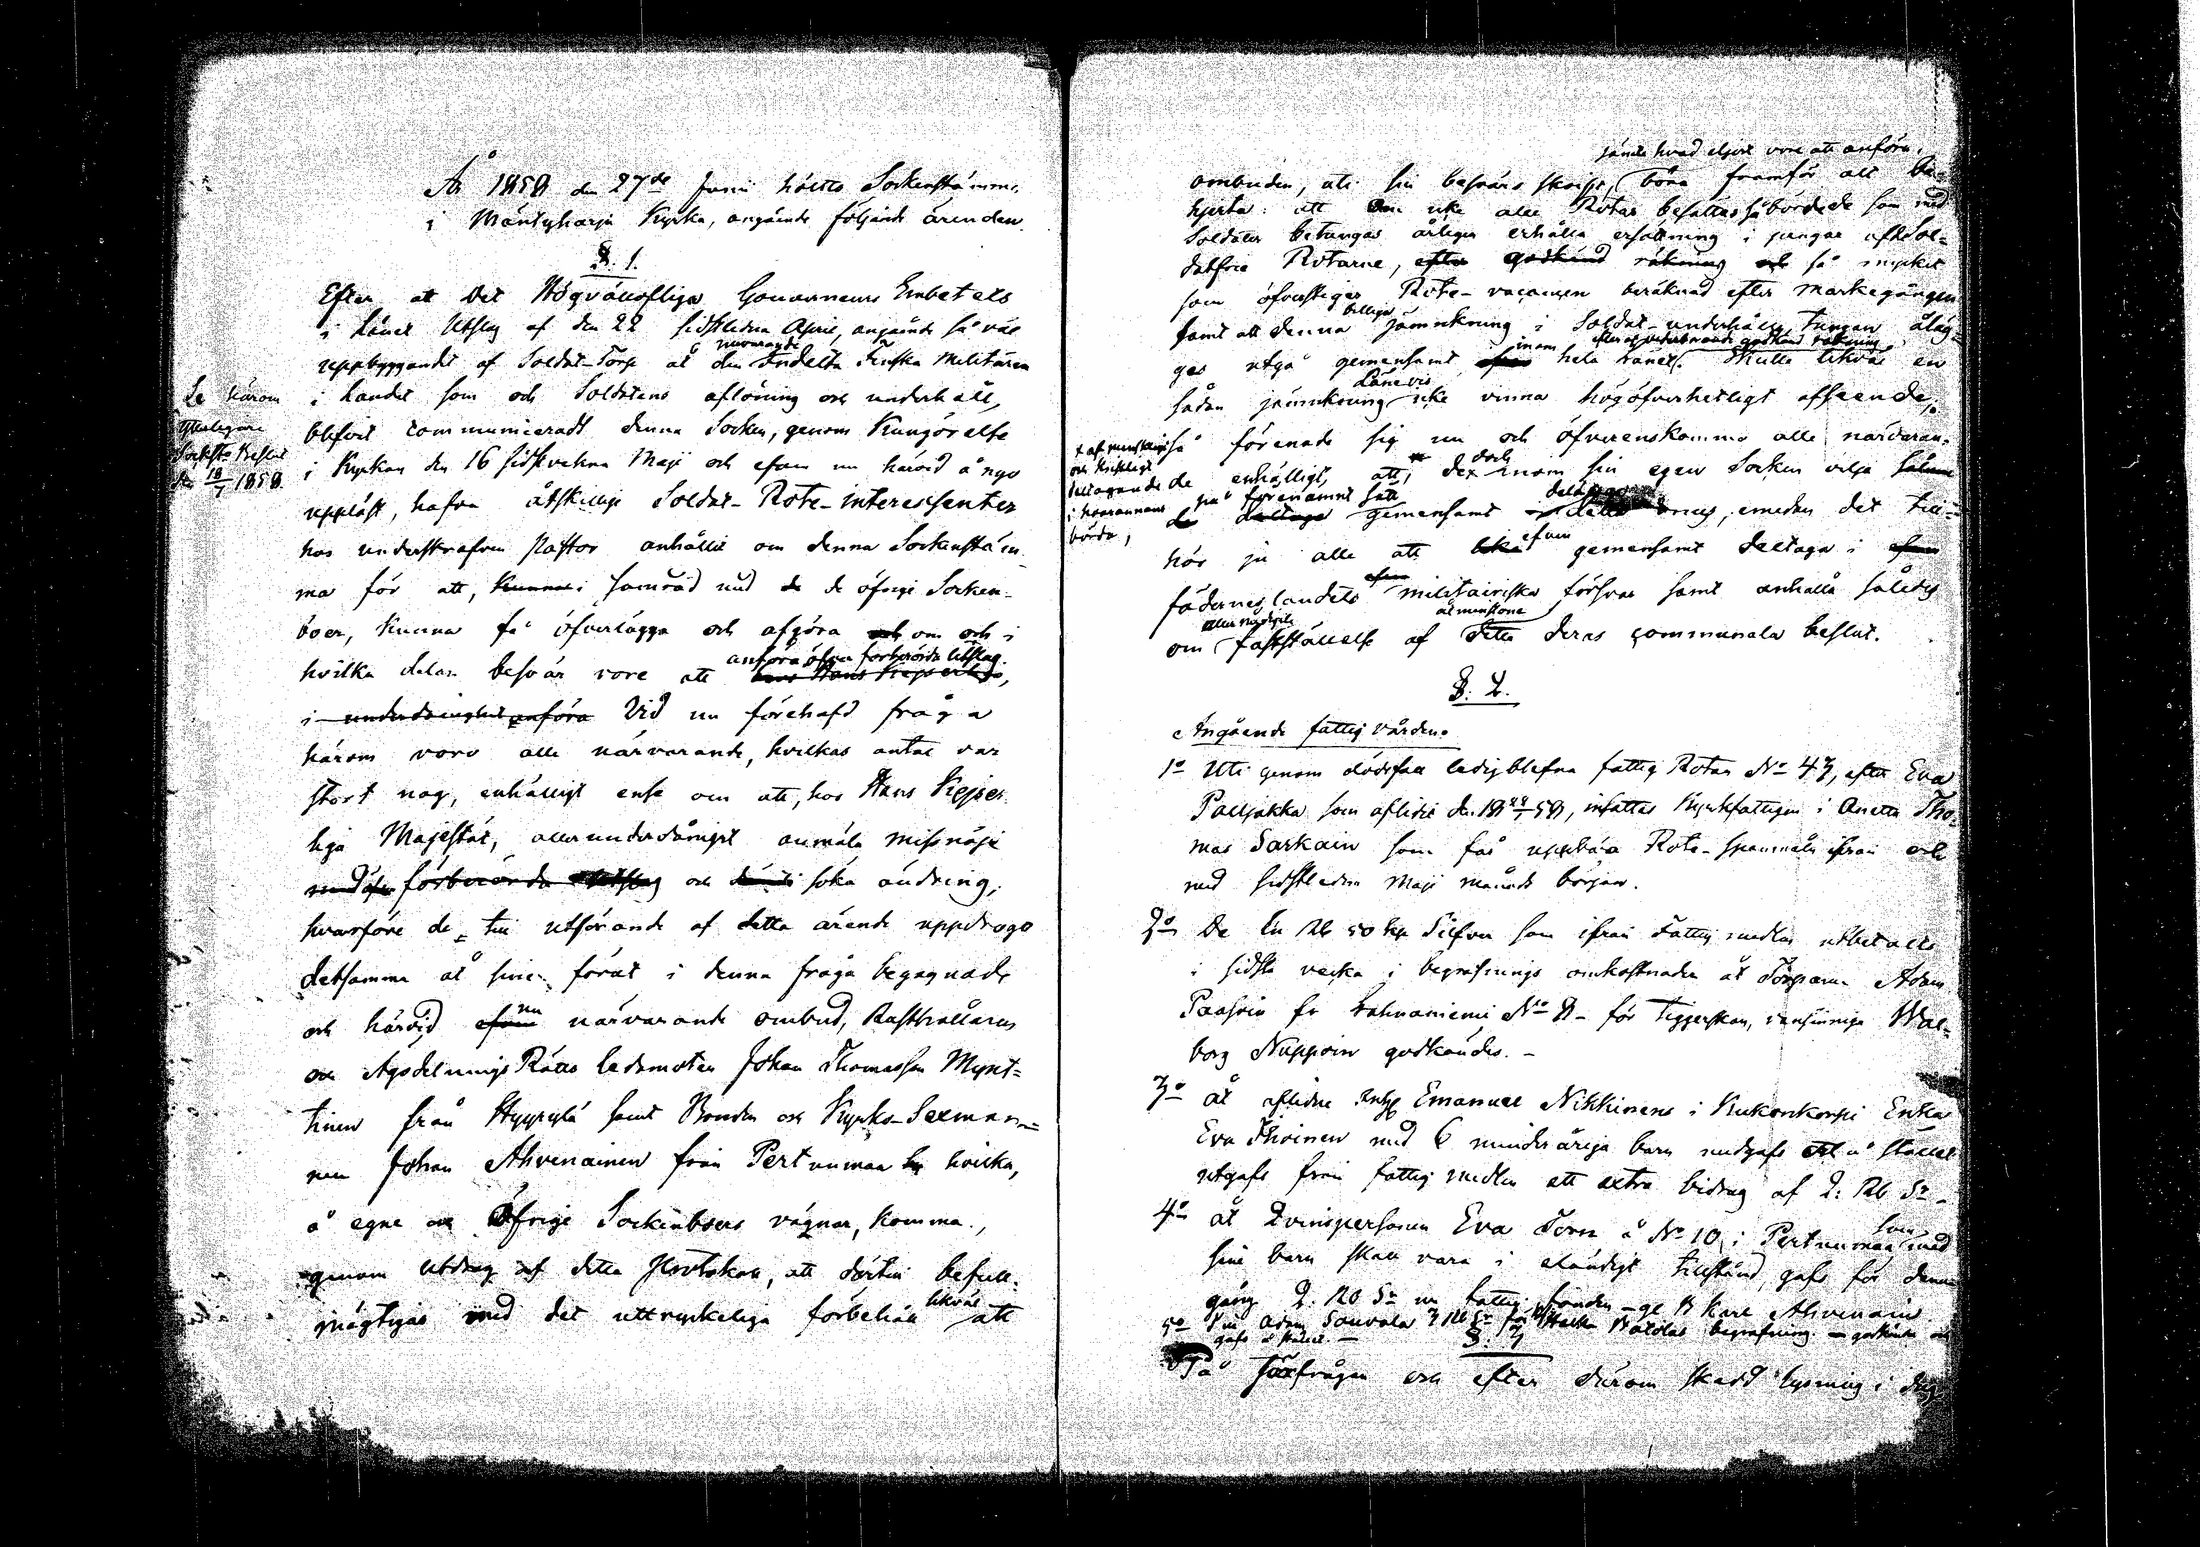 År 1858 den 27de Junii hölts Sockenstämma
i Mäntyharju Kyrka, angående följande ärenden.
§. 1.
Efter att Det Högvällofliga Gouverneurs Embetets
i Länet Utslag af den 22 sidstledne April, angående så väl
nuvarande
uppbyggandet af Soldat-Torp åt den Indelta Finska Militären
i Landet som och Soldatens aflöning och underhåll,
blifvit communiceradt denna Socken, genom Kungörelse
i Kyrkan den 16 sidstvekne Maji och efven nu härvid ånyo
uppläst, hafva åtskillige Soldat-Rote-interessenter
hos underskrefven Pastor anhållit om denna Sockenstäm-
ma för att, i samråd med de öfrige Socken-
boer, kunna få öfverlägga och afgöra om och i
anföra öfver förberörde Utslag.
hvilka delar besvär vore att
i underdånighet anföra Vid nu förehafd fråga
härom voro alle närvarande, hvilkas antal var
stort nog, enhälligt ense om att, hos Hans Kejser
liga Majestät, allerunderdånigst anmäla missnöje
förberörda och söka ändring,
hvarföre de till utförande af detta ärende uppdrogo
detsamma åt sine förut i denna fråga begagnade
nu
och härvid närvarande ombud, Rusthållaren
och Ägodelnings Rätts ledamoten Johan Thomasson Mynt-
tinen från Hyyrylä samt Bonden och Kyrko-Sexman-
nen Johan Ahvenainen från Pertunmaa hvilka,
å egne och öfrige Sockenboers vägnar, komma,
genom Utdrag af detta Protokoll, att dertill befull-
likväl
mägtigas med det uttryckeliga förbehåll att
Se härom
ytterligare
Sockenst. Beslut
den 18/7 1858.
jämte hvad eljest vore att anföra,
ombuden, uti sin besvärs skrift, böra framför allt be-
hjerta: att icke alle Rotar besattes så borde de som med
Soldater betungas årligen erhålla ersättning i pengar af Sol-
datfria Rotarne, så mycket
som öfverstiger Rote-vacancen beräknad efter markegången
billiga
samt att denna jämnkning i Soldat-underhålls tungan åläg-
inom
ges utgå gemensamt hela Länet. Skulle likväl en
Länevis
sådan jämnkning icke vinna högöfverhetligt afseende,
så förenade sig nu och öfverenskommo alle närvaran-
dock
de enhälligt, att, de inom sin egen Socken vilja
på förenämnt sätt
gemensamt onus, emedan det till-
efven
hör ju alle att gemensamt deltaga i
fäderneslandets militairiska försvar samt anhålla således
åtminstone
allernådigste
om fastställelse af detta deras communala beslut.
deltagande
i hvarannans
börda,
§. 2.
Angående fattig vården.
1o Uti genom dödsfall ledigblefne fattig Rotan No 47, efter Eva
Palljakka som aflidit den 58, insattes Kyrkfattigen i Anetta Tho-
mas Sarkain som får uppbära Rote-spanmåln ifrån och
med sidstleden Maji månads början.
2o De En Rb 50 kop Silfver som ifrån Fattig medlen utbetalts
i sidsta vecka i begrafnings omkostnader åt Torparen Adam
Paasoin fr No 8 för tiggerskan, vansinniga Wal-
borg Nuppoin godkändes.
3o åt aflidne Emanuel Nikkinens i Kukonkorpi Enka
Eva Thoinen med 6 minderåriga barn medgafs å stället
utgafs från fattig medlen ett extra bidrag af 2: Rb Sr
4o åt Qvinspersonen Eva Torn å No 10, i Pertunmaa som med
sine barn skall vara i eländigt tillstånd, gafs för denna
gång 2. Rb Sr ur fattig fonden Ahvenain.
5o Adam Sauvala 3 Rb Sr för begrafning godkändes
gafs å stället.
§. 3
På förfrågan och efter därom skedd lysning i dag